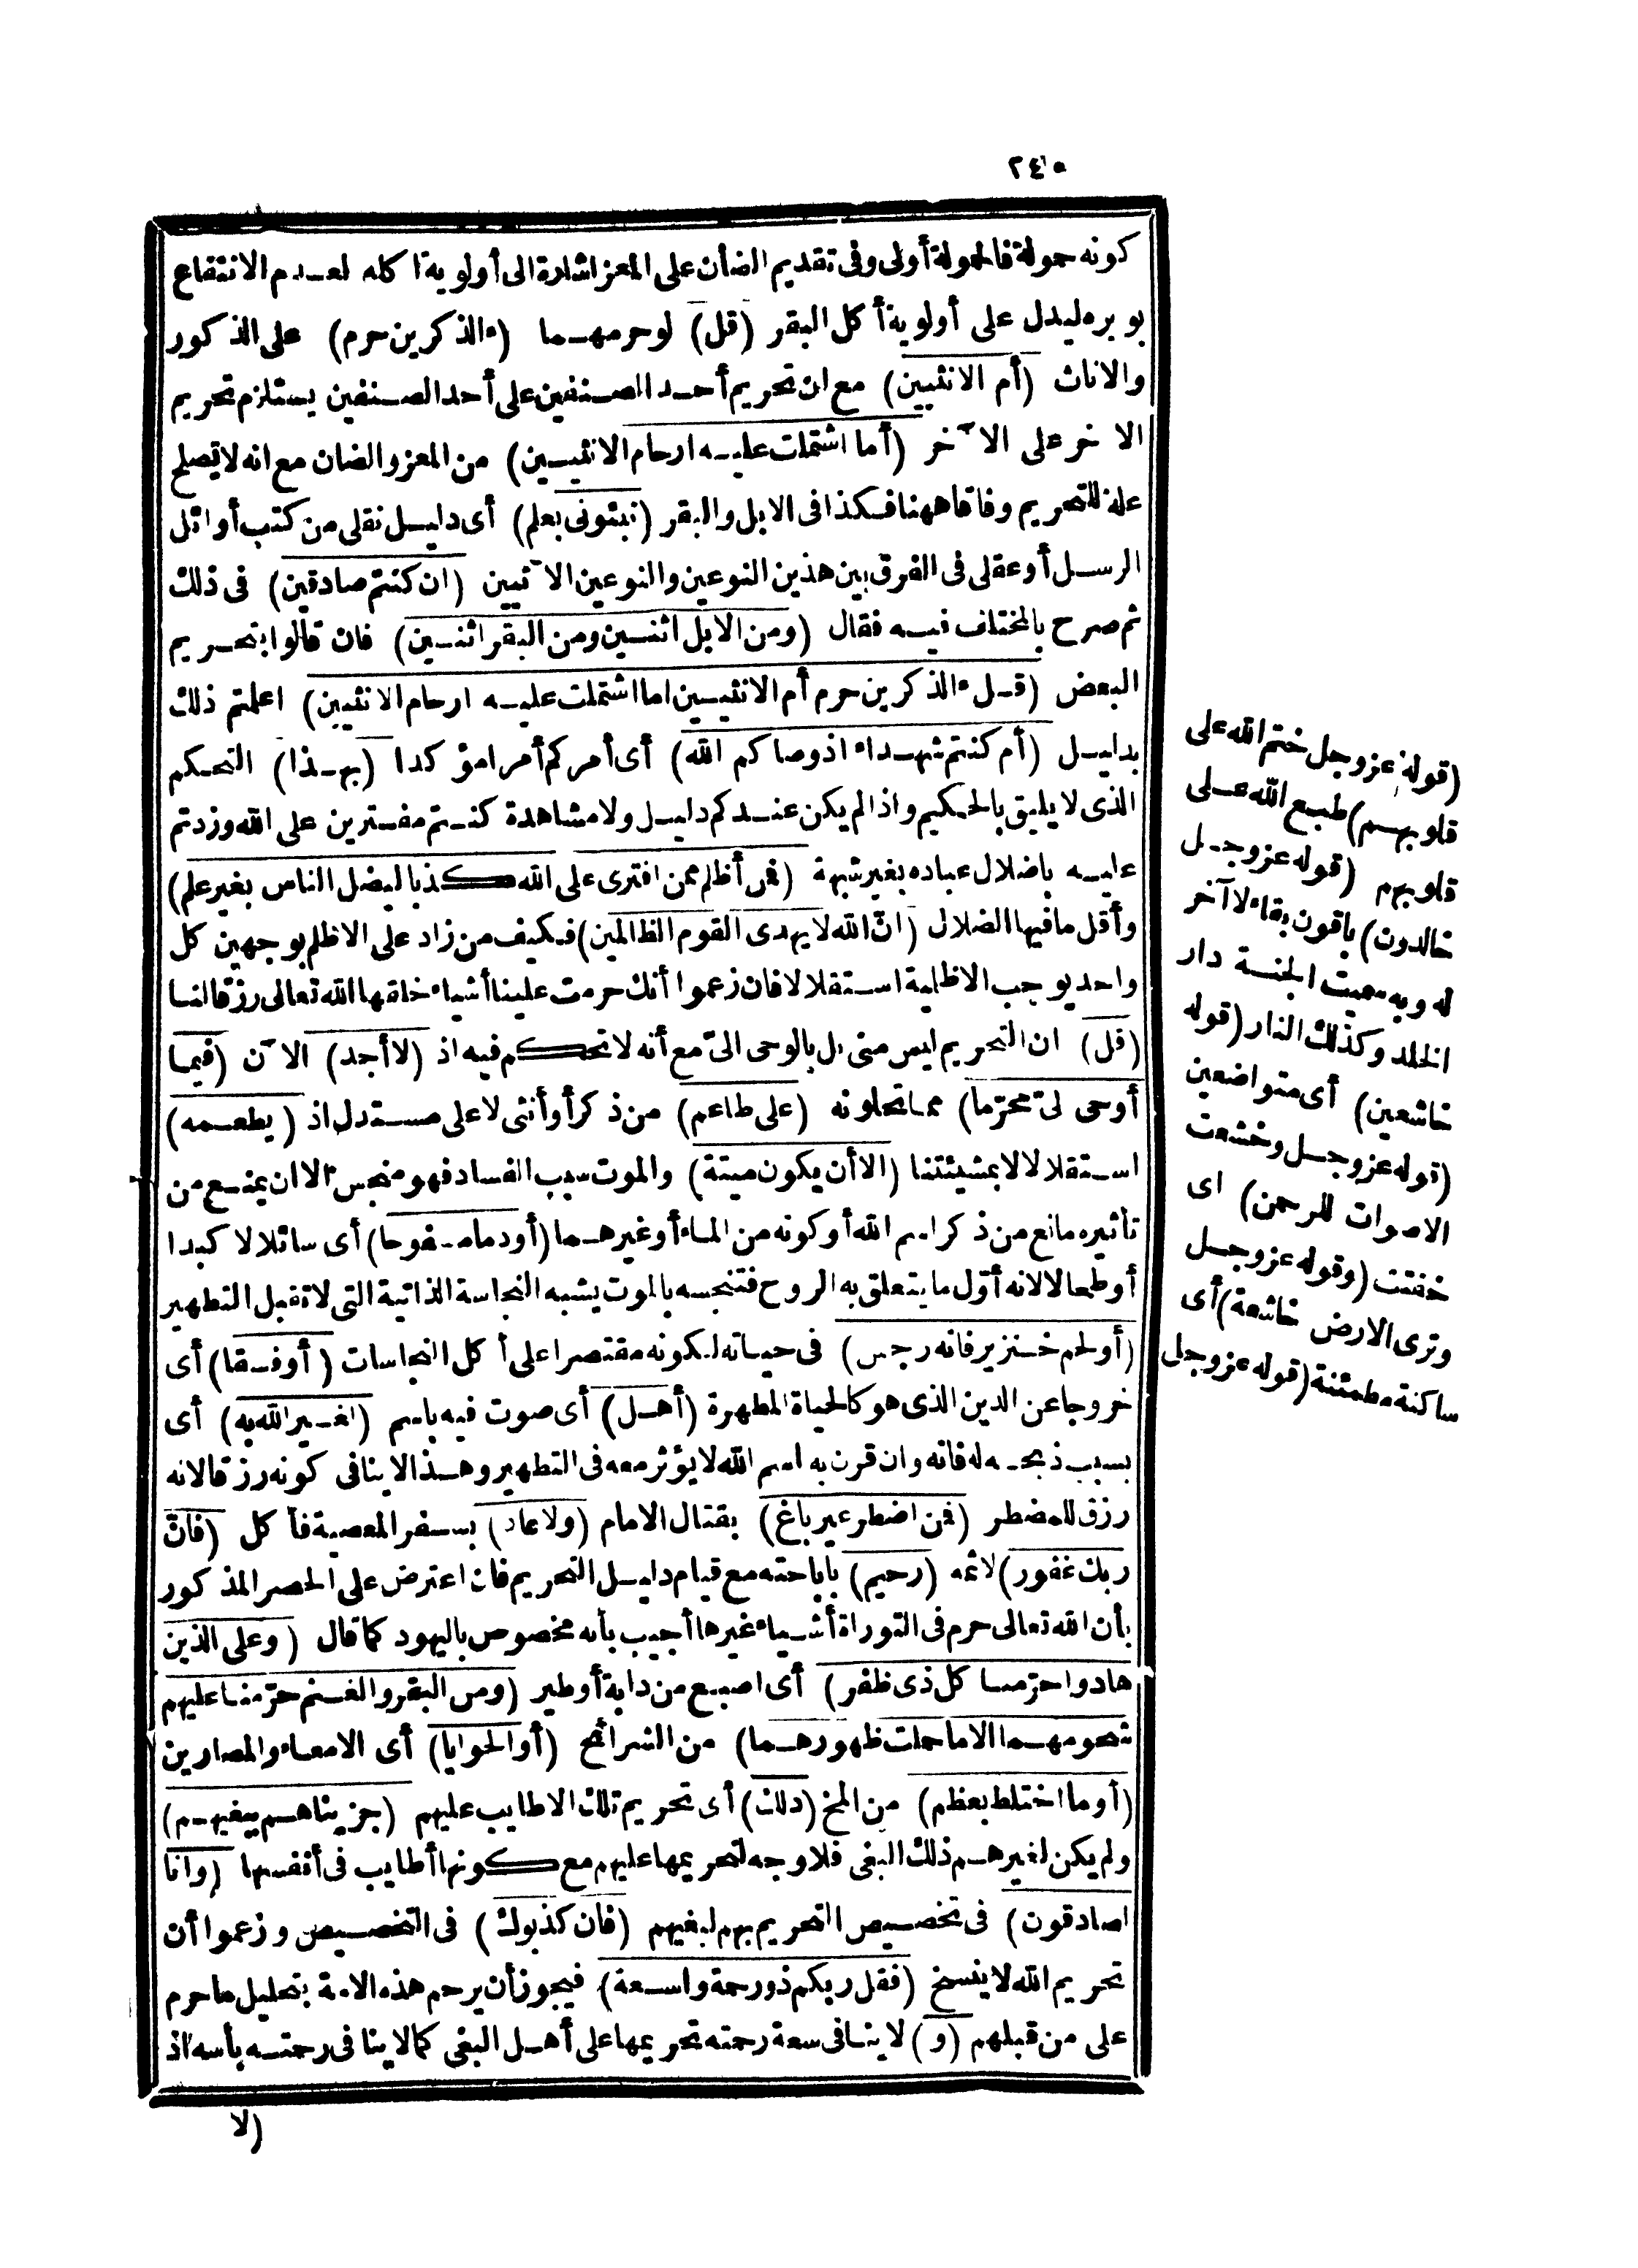 ٢٤٥
كونه حمولة فالحمولة أولى وفى تقديم الضأن على المعز اشارة الى أولوية أكله لعدم الانتفاع
بوبره ليدل على أولوية أكل البقر (قل) لوحرمهما (ءالذكرين حرم) على الذكور
والاناث (أم الانثيين) مع ان تحريم أحد الصنفين على أحد الصنفين يستلزم تحريم
الاخر على الآخر (أما اشتملت عليه ارحام الانثيين) من المعز والضان مع انه لا يصلح
علة للتحريم وفاقا ههنا فكذا فى الابل والبقر (نبئونى بعلم) أى دليل نقلى من كتب أوائل
الرسل أو عقلى فى الفرق بين هذين النوعين والنوعين الآتيين (ان كنتم صادقين) فى ذلك
ثم صرح بالمختلف فيه فقال (ومن الابل اثنين ومن البقر اثنين) فان قالوا بتحريم
البعض (قل ءالذكرين حرم أم الانثيين اما اشتملت عليه ارحام الانثيين) اعلمتم ذلك
بدليل (أم كنتم شهداء اذ وصاكم الله) أى أمركم أمرا مؤكدا (بهذا) التحكم
الذى لا يليق بالحكيم واذا لم يكن عندكم دليل ولا مشاهدة كنتم مفترين على الله وزدتم
عليه باضلال عباده بغير شبهة (فمن أظلم ممن افترى على الله كذبا ليضل الناس بغير علم)
وأقل ما فيها الضلال (انّ الله لا يهدى القوم الظالمين) فكيف من زاد على الاظلم بوجهين كل
واحد يوجب الاظلمية استقلالا فان زعموا أنك حرمت علينا أشياء خلقها الله تعالى رزقا لنا
(قل) ان التحريم ليس منى بل بالوحى الىّ مع أنه لا تحكم فيه اذ (لا أجد) الآن (فيما
أوحى لىّ محرّما) مما تحلونه (على طاعم) من ذكر أو أنثى لا على مستدل اذ (يطعمه)
استقلالا لا بمشيئتنا (الا أن يكون ميتة) والموت سبب الفساد فهو منجس الا ان يمنع من
تأثيره مانع من ذكر اسم الله أو كونه من الماء أو غيرهما (أو دما مسفوحا) أى سائلا لا كبدا
أو طحالا لانه أوّل ما يتعلق به الروح فتنجسه بالموت يشبه النجاسة الذاتية التى لا تقبل التطهير
(أو لحم خنزير فانه رجس) فى حياته لكونه مقتصرا على أكل النجاسات (أو فسقا) أى
خروجا عن الدين الذى هو كالحياة المطهرة (أهل) أى صوت فيه باسم (لغير الله به) أى
بسبب ذبحه له فانه وان قرن به اسم الله لا يؤثر معه فى التطهير وهذا لا ينافى كونه رزقا لانه
رزق للمضطر (فمن اضطر غير باغ) بقتال الامام (ولا عاد) بسفر المعصية فأكل (فانّ
ربك غفور) لاثمه (رحيم) باباحته مع قيام دليل التحريم فان اعترض على الحصر المذكور
بأن الله تعالى حرم فى التوراة أشياء غيرها أجيب بأنه مخصوص باليهود كما قال (وعلى الذين
هادوا حرّمنا كل ذى ظفر) أى اصبع من دابة أو طير (ومن البقر والغنم حرّمنا عليهم
شحومهما الا ما حملت ظهورهما) من الشرائح (أو الحوايا) أى الامعاء والمصارين
(أو ما اختلط بعظم) من المخ (ذلك) أى تحريم تلك الاطايب عليهم (جزيناهم ببغيهم)
ولم يكن لغيرهم ذلك البغى فلا وجه لتحريمها عليهم مع كونها أطايب فى أنفسها (وانا
لصادقون) فى تخصيص التحريم بهم لبغيهم (فان كذبوك) فى التخصيص وزعموا أن
تحريم الله لا ينسخ (فقل ربكم ذو رحمة واسعة) فيجوز أن يرحم هذه الامة بتحليل ما حرم
على من قبلهم (و) لا ينافى سعة رحمته تحريمها على أهل البغى كما لا ينافى رحمته بأسه اذ
(لا
(قوله عز وجل ختم الله على
قلوبهم) طبع الله على
قلوبهم (قوله عز وجل
خالدون) باقون بقاء لا آخر
له وبه سميت الجنة دار
الخلد وكذلك النار (قوله
خاشعين) أى متواضعين
(قوله عز وجل وخشعت
الاصوات للرحمن) اى
خفتت (وقوله عز وجل
وترى الارض خاشعة) أى
ساكنة مطمئنة (قوله عز وجل